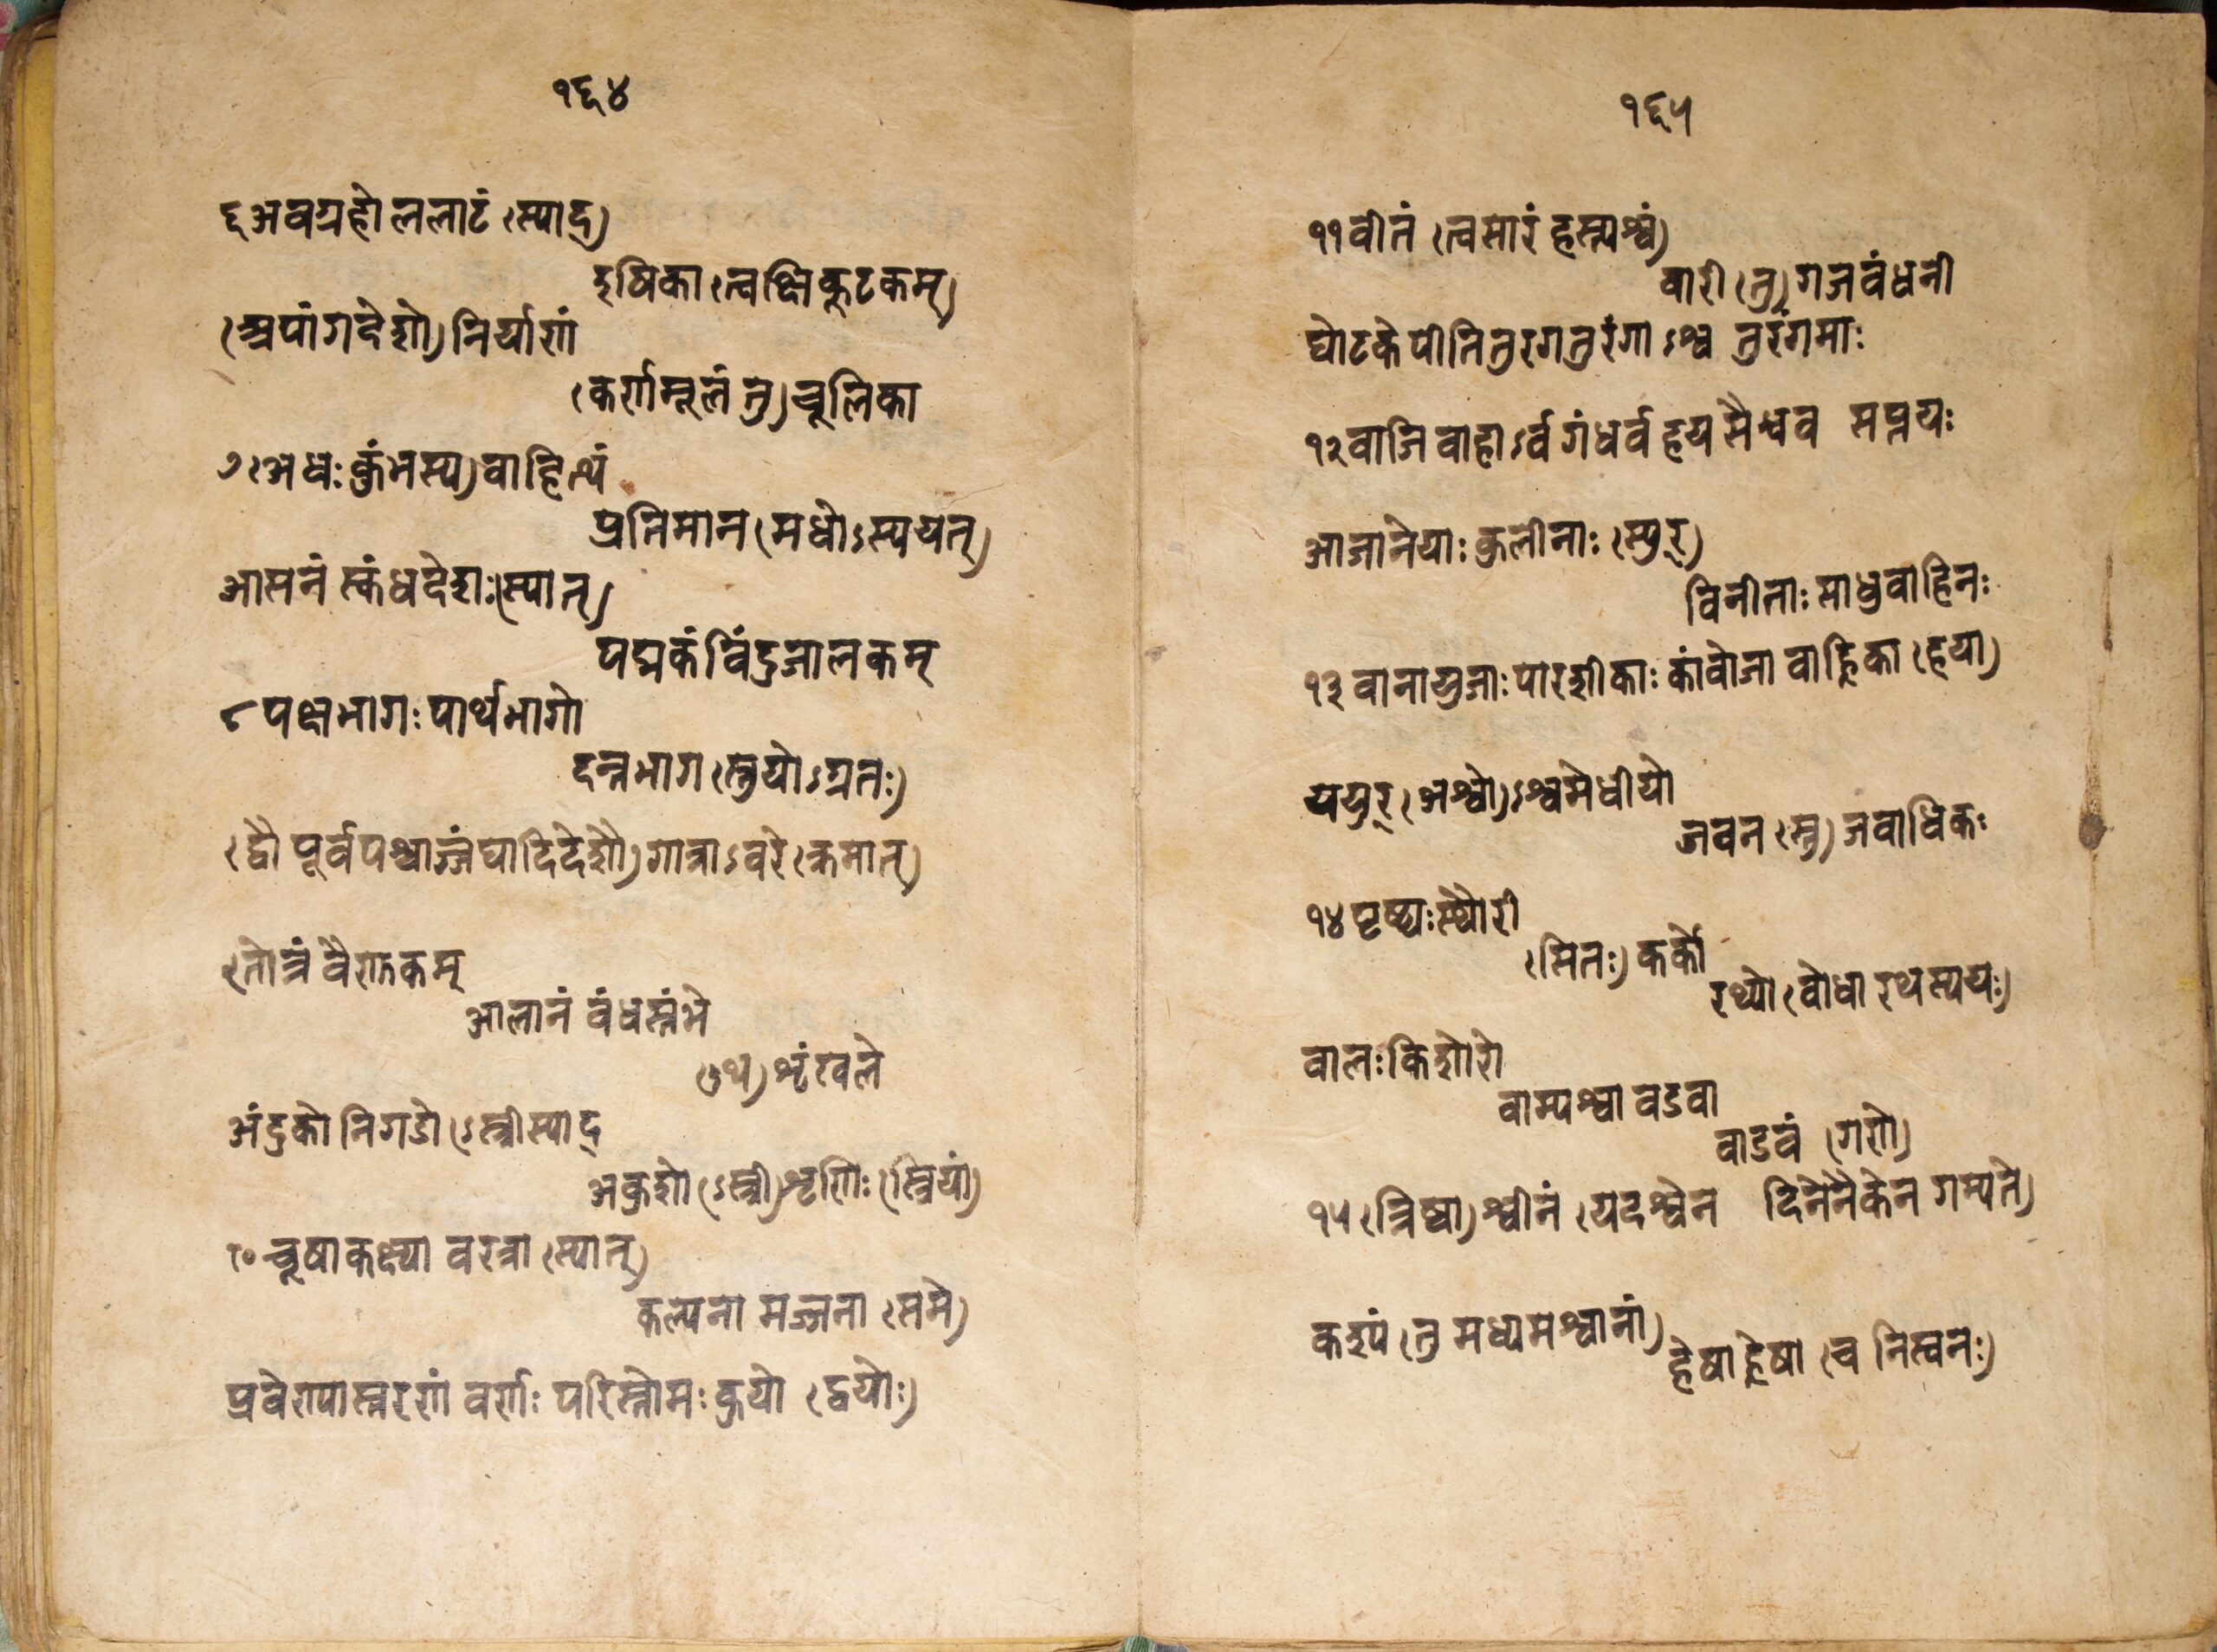 १६४
६ अवग्रहो ललाटं (स्याद्)
इषिका (त्वक्षिकूटकम्)
(अपांगदेशो) निर्याणं
(कर्णमूलं तु) चूलिका
७ (अधः कुंभस्य) वाहित्थं
प्रतिमान (मधोऽस्य यत्)
आसनं स्कंधदेशः (स्यात्)
पद्मकं विंदुजालकम्
८ पक्षभागः पार्थभागो
दन्तभाग (स्तु योऽग्रतः)
(द्वौ पूर्वपश्चाज्जंघादिदेशौ) गात्राऽवरे (क्रमात्)
९ तोत्रं वैणुकम्
आलानं वंधस्तंभे
(ऽथ) शृंखले
अंदुको निगडो (ऽस्त्री स्याद्
अकुशो (ऽस्त्री) शृणिः (स्त्रियां)
१० चूषा कक्ष्या वरत्रा (स्यात्)
कल्पना मज्जना (समे)
प्रवेण्यास्तरणं वर्णः परिस्तोमः कुथो (द्वयोः)
१६५
११ वीतं (त्वसारं हस्त्यश्वं)
वारी (तु) गजवंधनी
घोटके पीति तुरग तुरंगाऽश्व तुरंगमाः
१२ वाजि वाहाऽर्व गंधर्व हय सैश्वव सप्तयः
आजानेयाः कुलीनाः (स्युर्)
विनीताः साधुवाहिनः
१३ वानायुजाः पारशीकाः कांवोजा वाह्लिका (हया)
ययुर् (अश्वो)ऽश्वमेधीयो
जवन (स्तु) जवाधिकः
१४ पृष्ठ्यः स्थौरी
(सितः) कर्को
रथ्यो (वोधा रथस्य यः)
वालः किशोरो
वाम्यश्वा वडवा
वाडवं (गणे)
१५ (त्रिष्वा)श्वीनं (यदश्वेन दिनेनैकेन गम्यते)
कश्यं (तु मध्यमश्वानां)
हेषा ह्रेषा (च निस्वनः)